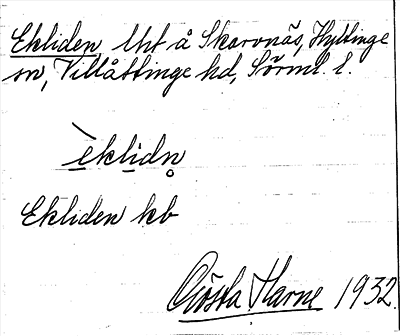 Ekliden, lht å Skarvnäs, Hyltinge
sn, Villåttinge hd, Sörml. l.
èklidn̥
Ekliden kb
Gösta Harne 1932.